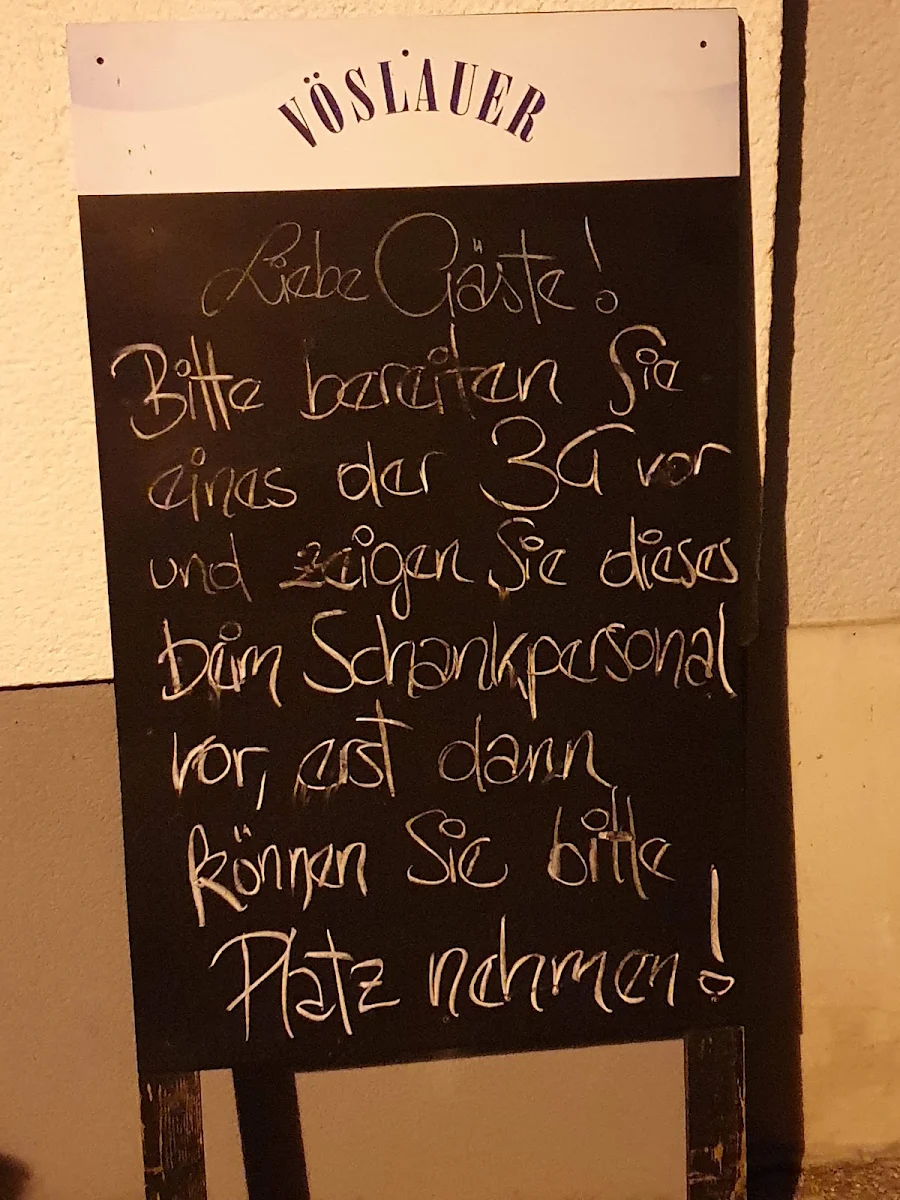 VÖSLAUER
Liebe Gäste!
Bitte bereiten Sie
eines der 3G vor
und zeigen Sie dieses
beim Schankpersonal
vor, erst dann
können Sie bitte
Platz nehmen!